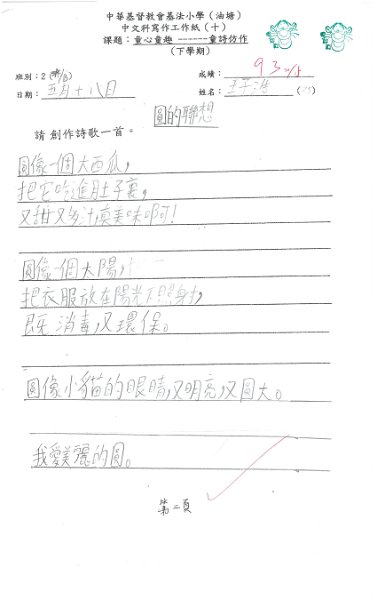 中華基督教會基法小學（油塘）
中文科寫作工作紙（十）
課題：童心童趣-------童詩仿作
（下學期）
班別：2
成績：93
日期：五月十八日
姓名：
圓的聯想
請創作詩歌一首。
圓像一個大西瓜，
把它吃進肚子裏，
又甜又多汁，真美味啊！
圓像一個太陽，
把衣服放在陽光下照射，
既消毒，又環保。
圓像小貓的眼睛，又明亮，又圓大。
我愛美麗的圓。
第二頁